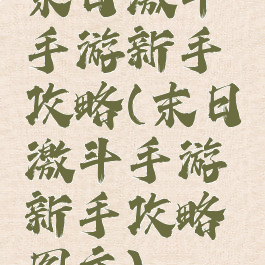 末日激斗
手游新手
攻略(末日
激斗手游
新手攻略